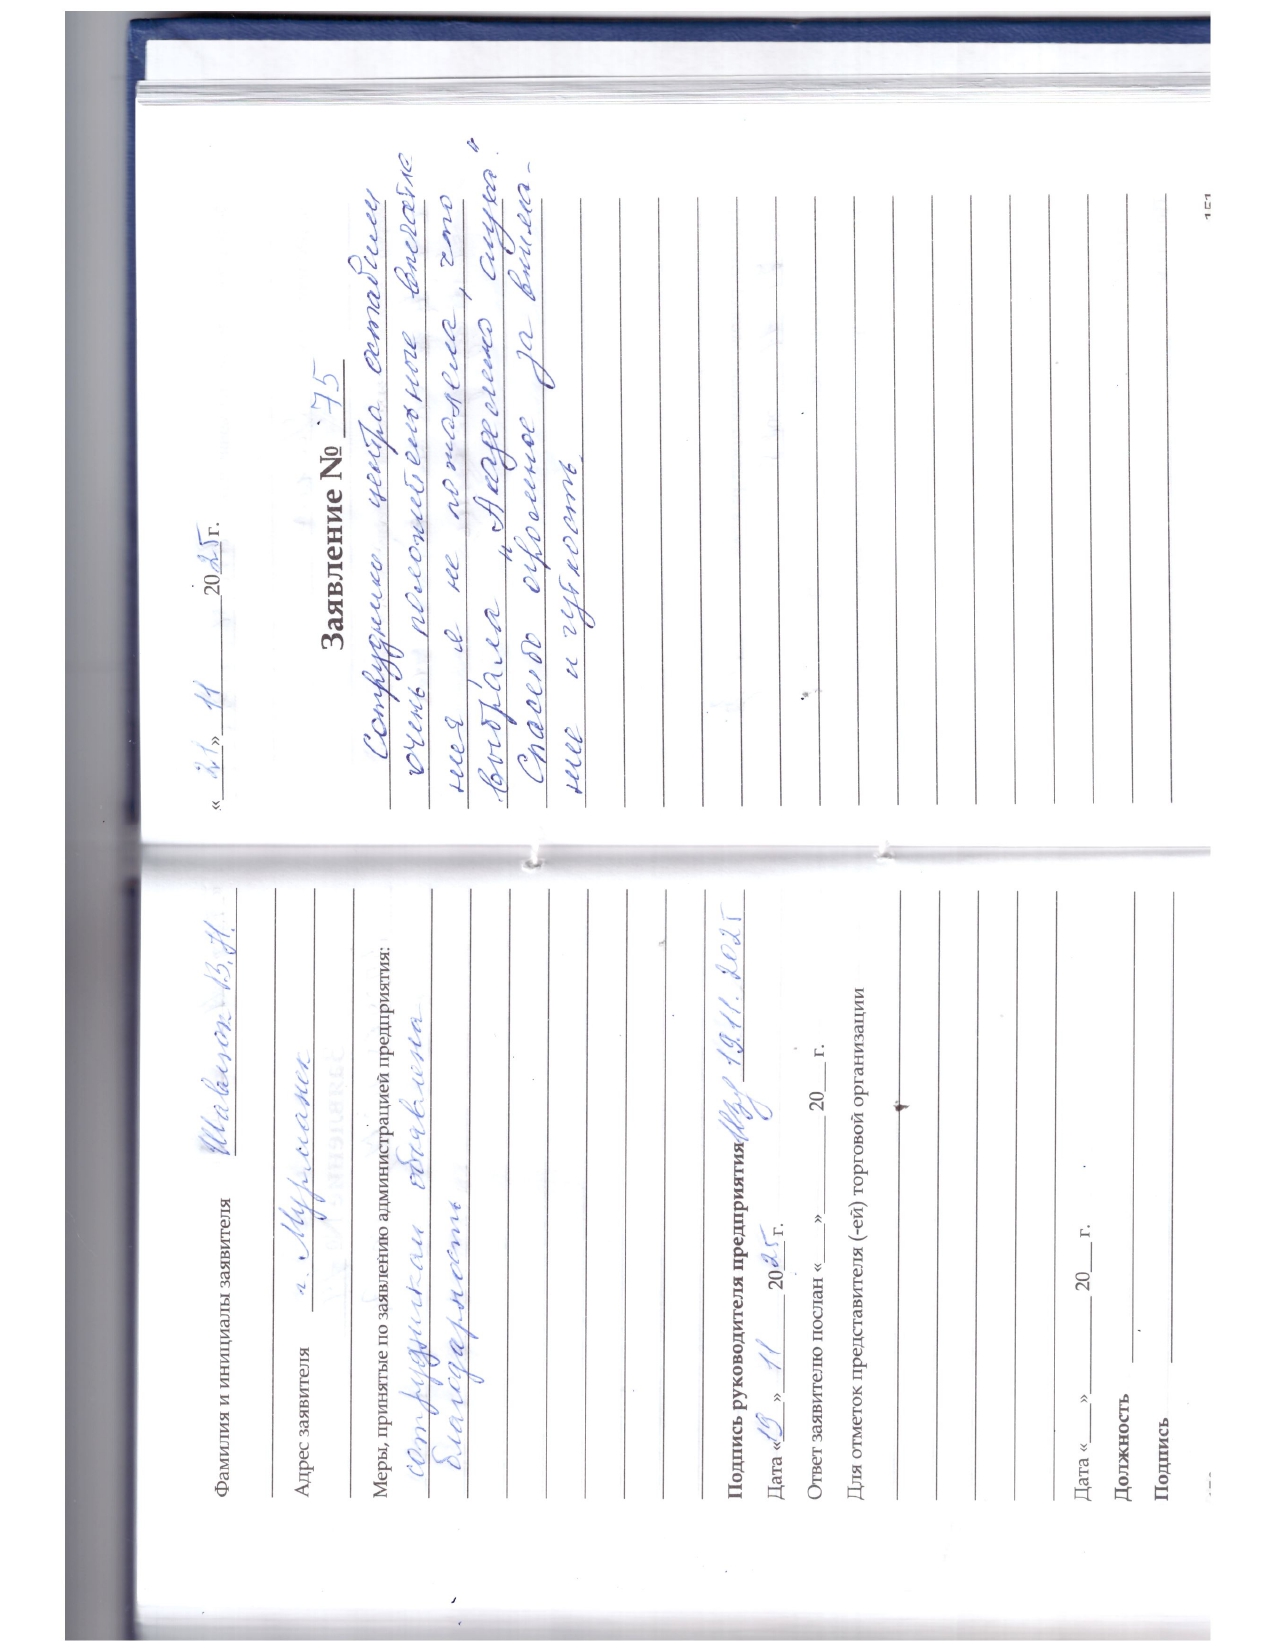 Фамилия и инициалы заявителя В. Н.
Адрес заявителя г. Мурманск
Меры, принятые по заявлению администрацией предприятия:
сотрудникам объявлена
благодарность
Подпись руководителя предприятия 19.11.2025
Дата «19» 11 2025 г.
Ответ заявителю послан «___» ______ 20___ г.
Для отметок представителя (-ей) торговой организации
Дата «___» ______ 20___ г.
Должность
Подпись
«21» 11 2025 г.
Заявление № 75
Сотрудники центра оставили
очень положительные впечатле
ния я не пожалела, что
выбрала „Академию слуха".
Спасибо огромное за внима-
ние и чуткость.
151